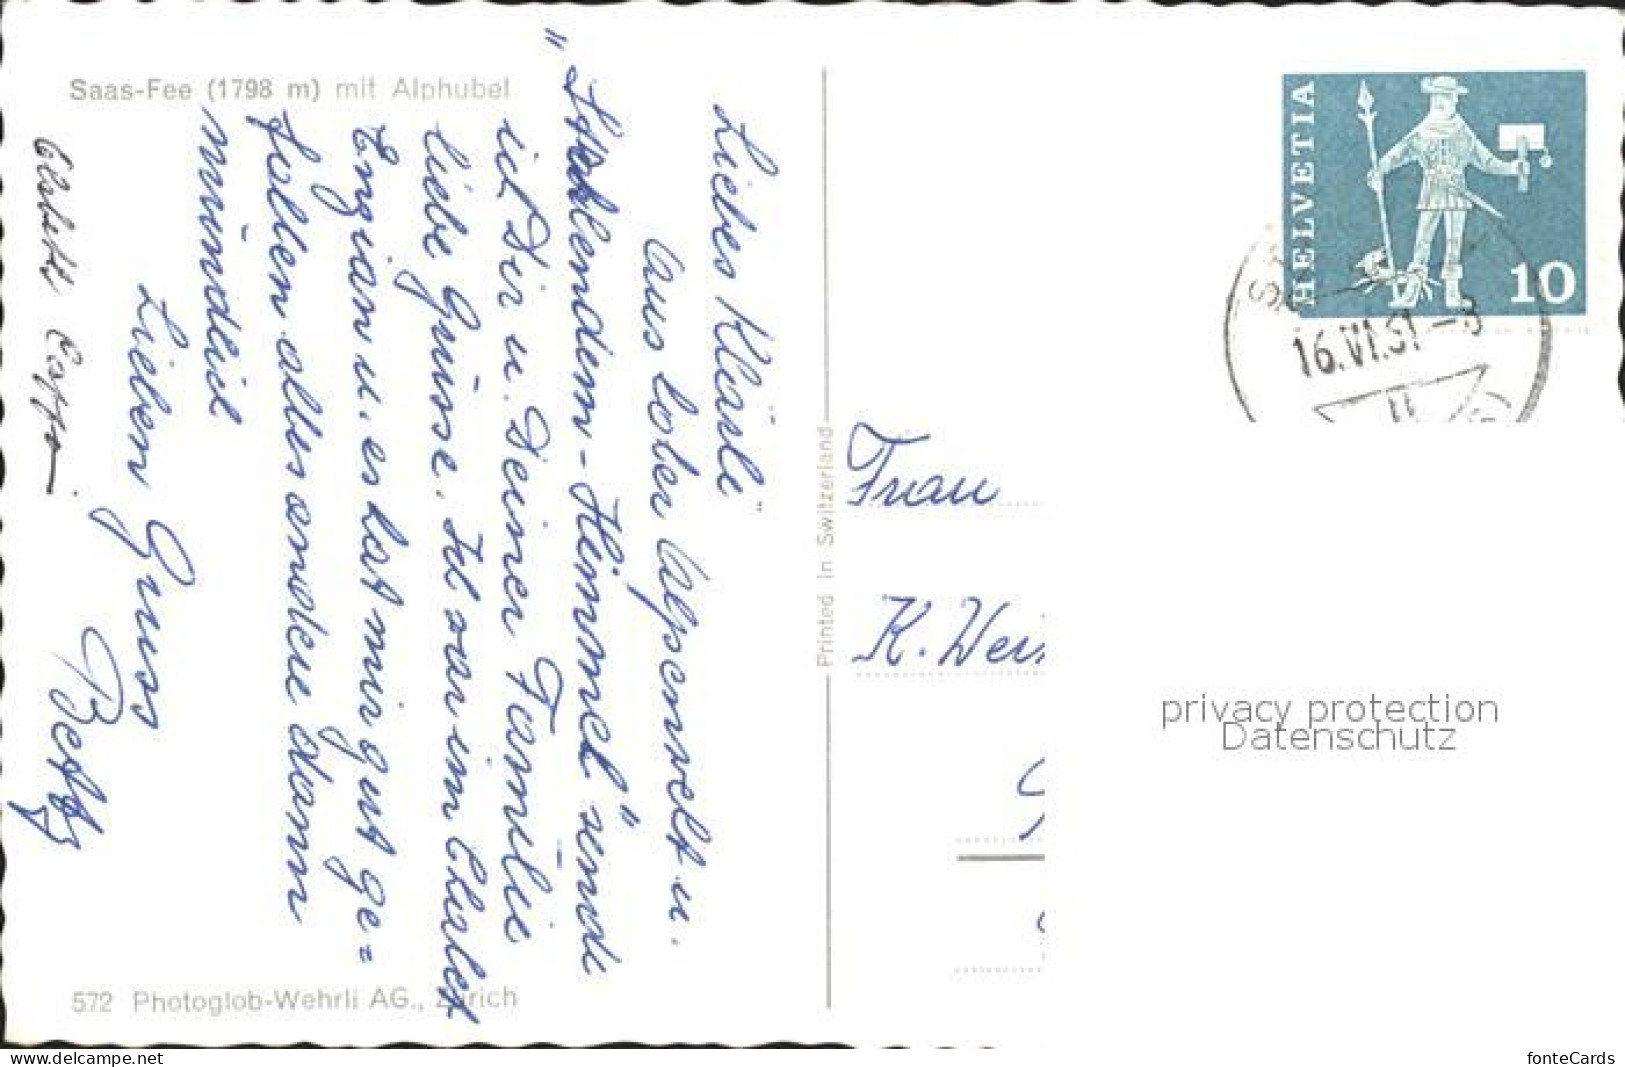 Saas-Fee (1798 m) mit Alphubel
Liebes Kläirli"
Aus toller Alpenwelt u.
"Strahlendem-Himmel" sende
ich Dir u. Deiner Familie
liebe Grüsse. Ich war im Chalet
Enzian u. es hat mir gut ge=
follen alles andere dann
mündlich
Lieben Gruss
Betty
Elsbeth
572 Photoglob-Wehrli AG., Zürich
Printed in Switzerland
HELVETIA
10
16.VI.61.-8
Frau
K. Wei
privacy protection
Datenschutz
www.delcampe.net
fonteCards